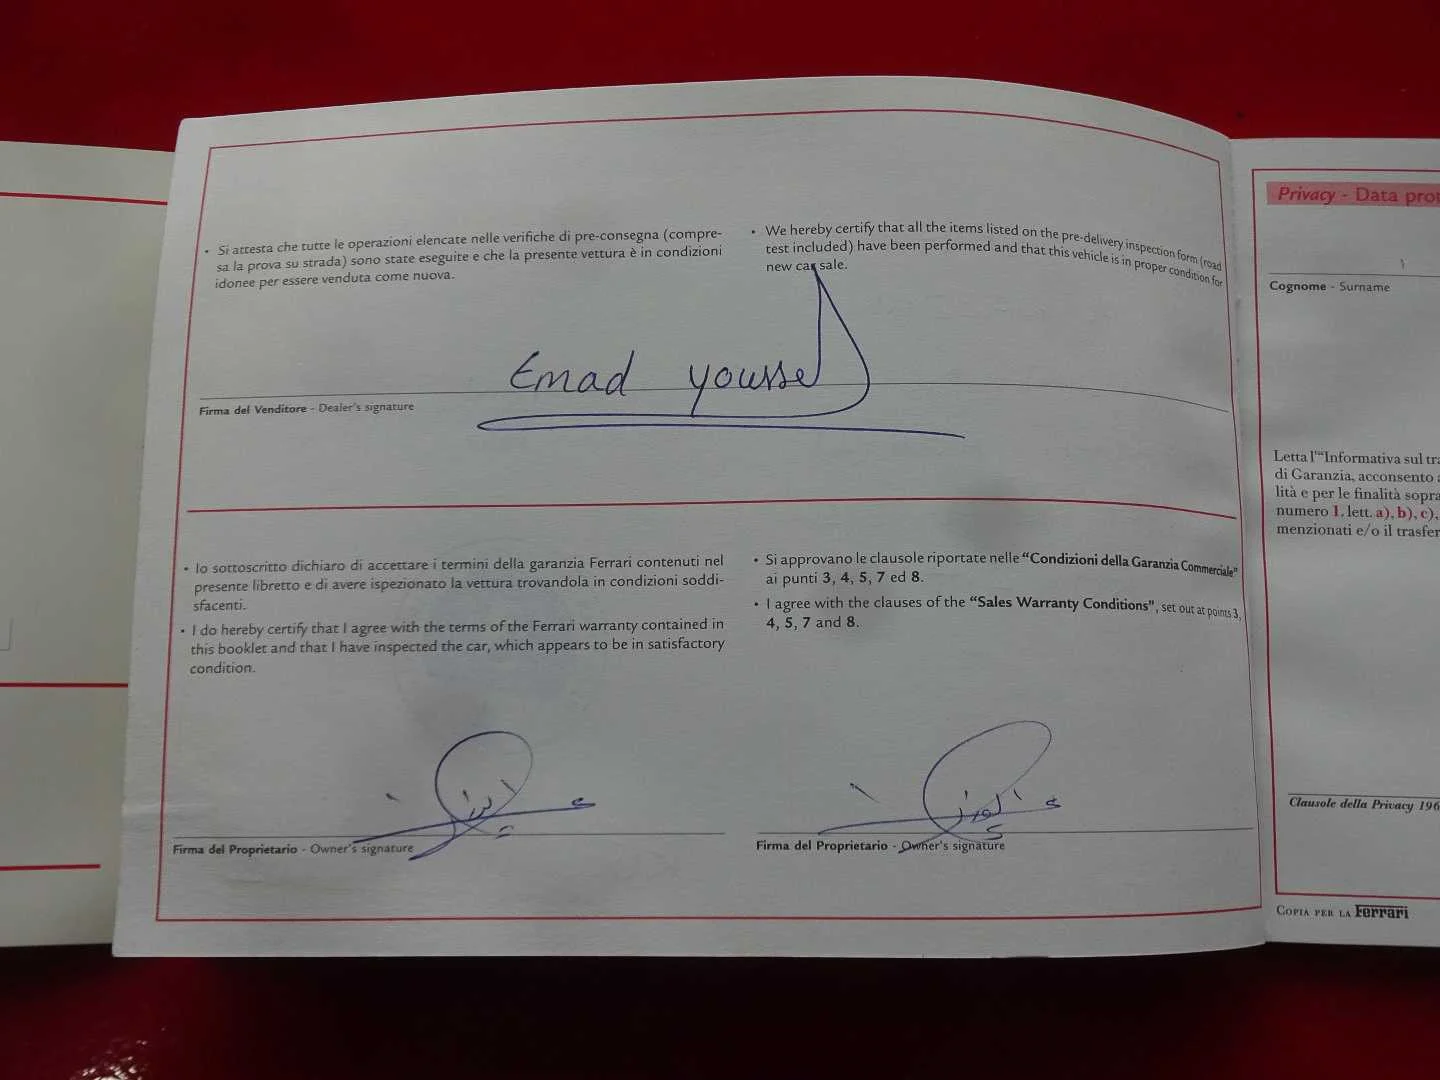 • Si attesta che tutte le operazioni elencate nelle verifiche di pre-consegna (compre-
sa la prova su strada) sono state eseguite e che la presente vettura è in condizioni
idonee per essere venduta come nuova.
• We hereby certify that all the items listed on the pre-delivery inspection form (road
test included) have been performed and that this vehicle is in proper condition for
new car sale.
Emad Youssef
Firma del Venditore - Dealer's signature
• Io sottoscritto dichiaro di accettare i termini della garanzia Ferrari contenuti nel
presente libretto e di avere ispezionato la vettura trovandola in condizioni soddi-
sfacenti.
• I do hereby certify that I agree with the terms of the Ferrari warranty contained in
this booklet and that I have inspected the car, which appears to be in satisfactory
condition.
• Si approvano le clausole riportate nelle “Condizioni della Garanzia Commerciale”
ai punti 3, 4, 5, 7 ed 8.
• I agree with the clauses of the “Sales Warranty Conditions”, set out at points 3,
4, 5, 7 and 8.
Firma del Proprietario - Owner's signature
Firma del Proprietario - Owner's signature
Privacy - Data
Cognome - Surname
Letta l'“Informativa sul
di Garanzia, acconsento
lità e per le finalità
numero 1. lett. a), b), c),
menzionati e/o il
Clausole della Privacy 196
Copia per la Ferrari